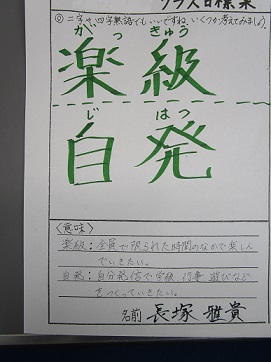 クラス目標案
◎二字や、四字熟語でもいいですね。いくつか考えてみましょう。
がっ きゅう
楽 級
じ はつ
自 発
〈意味〉
楽級：全員で限られた時間のなかで楽しん
でいきたい。
自発：自分発信で学級、行事、遊びなど
をつくっていきたい。
名前 長塚 雅貴